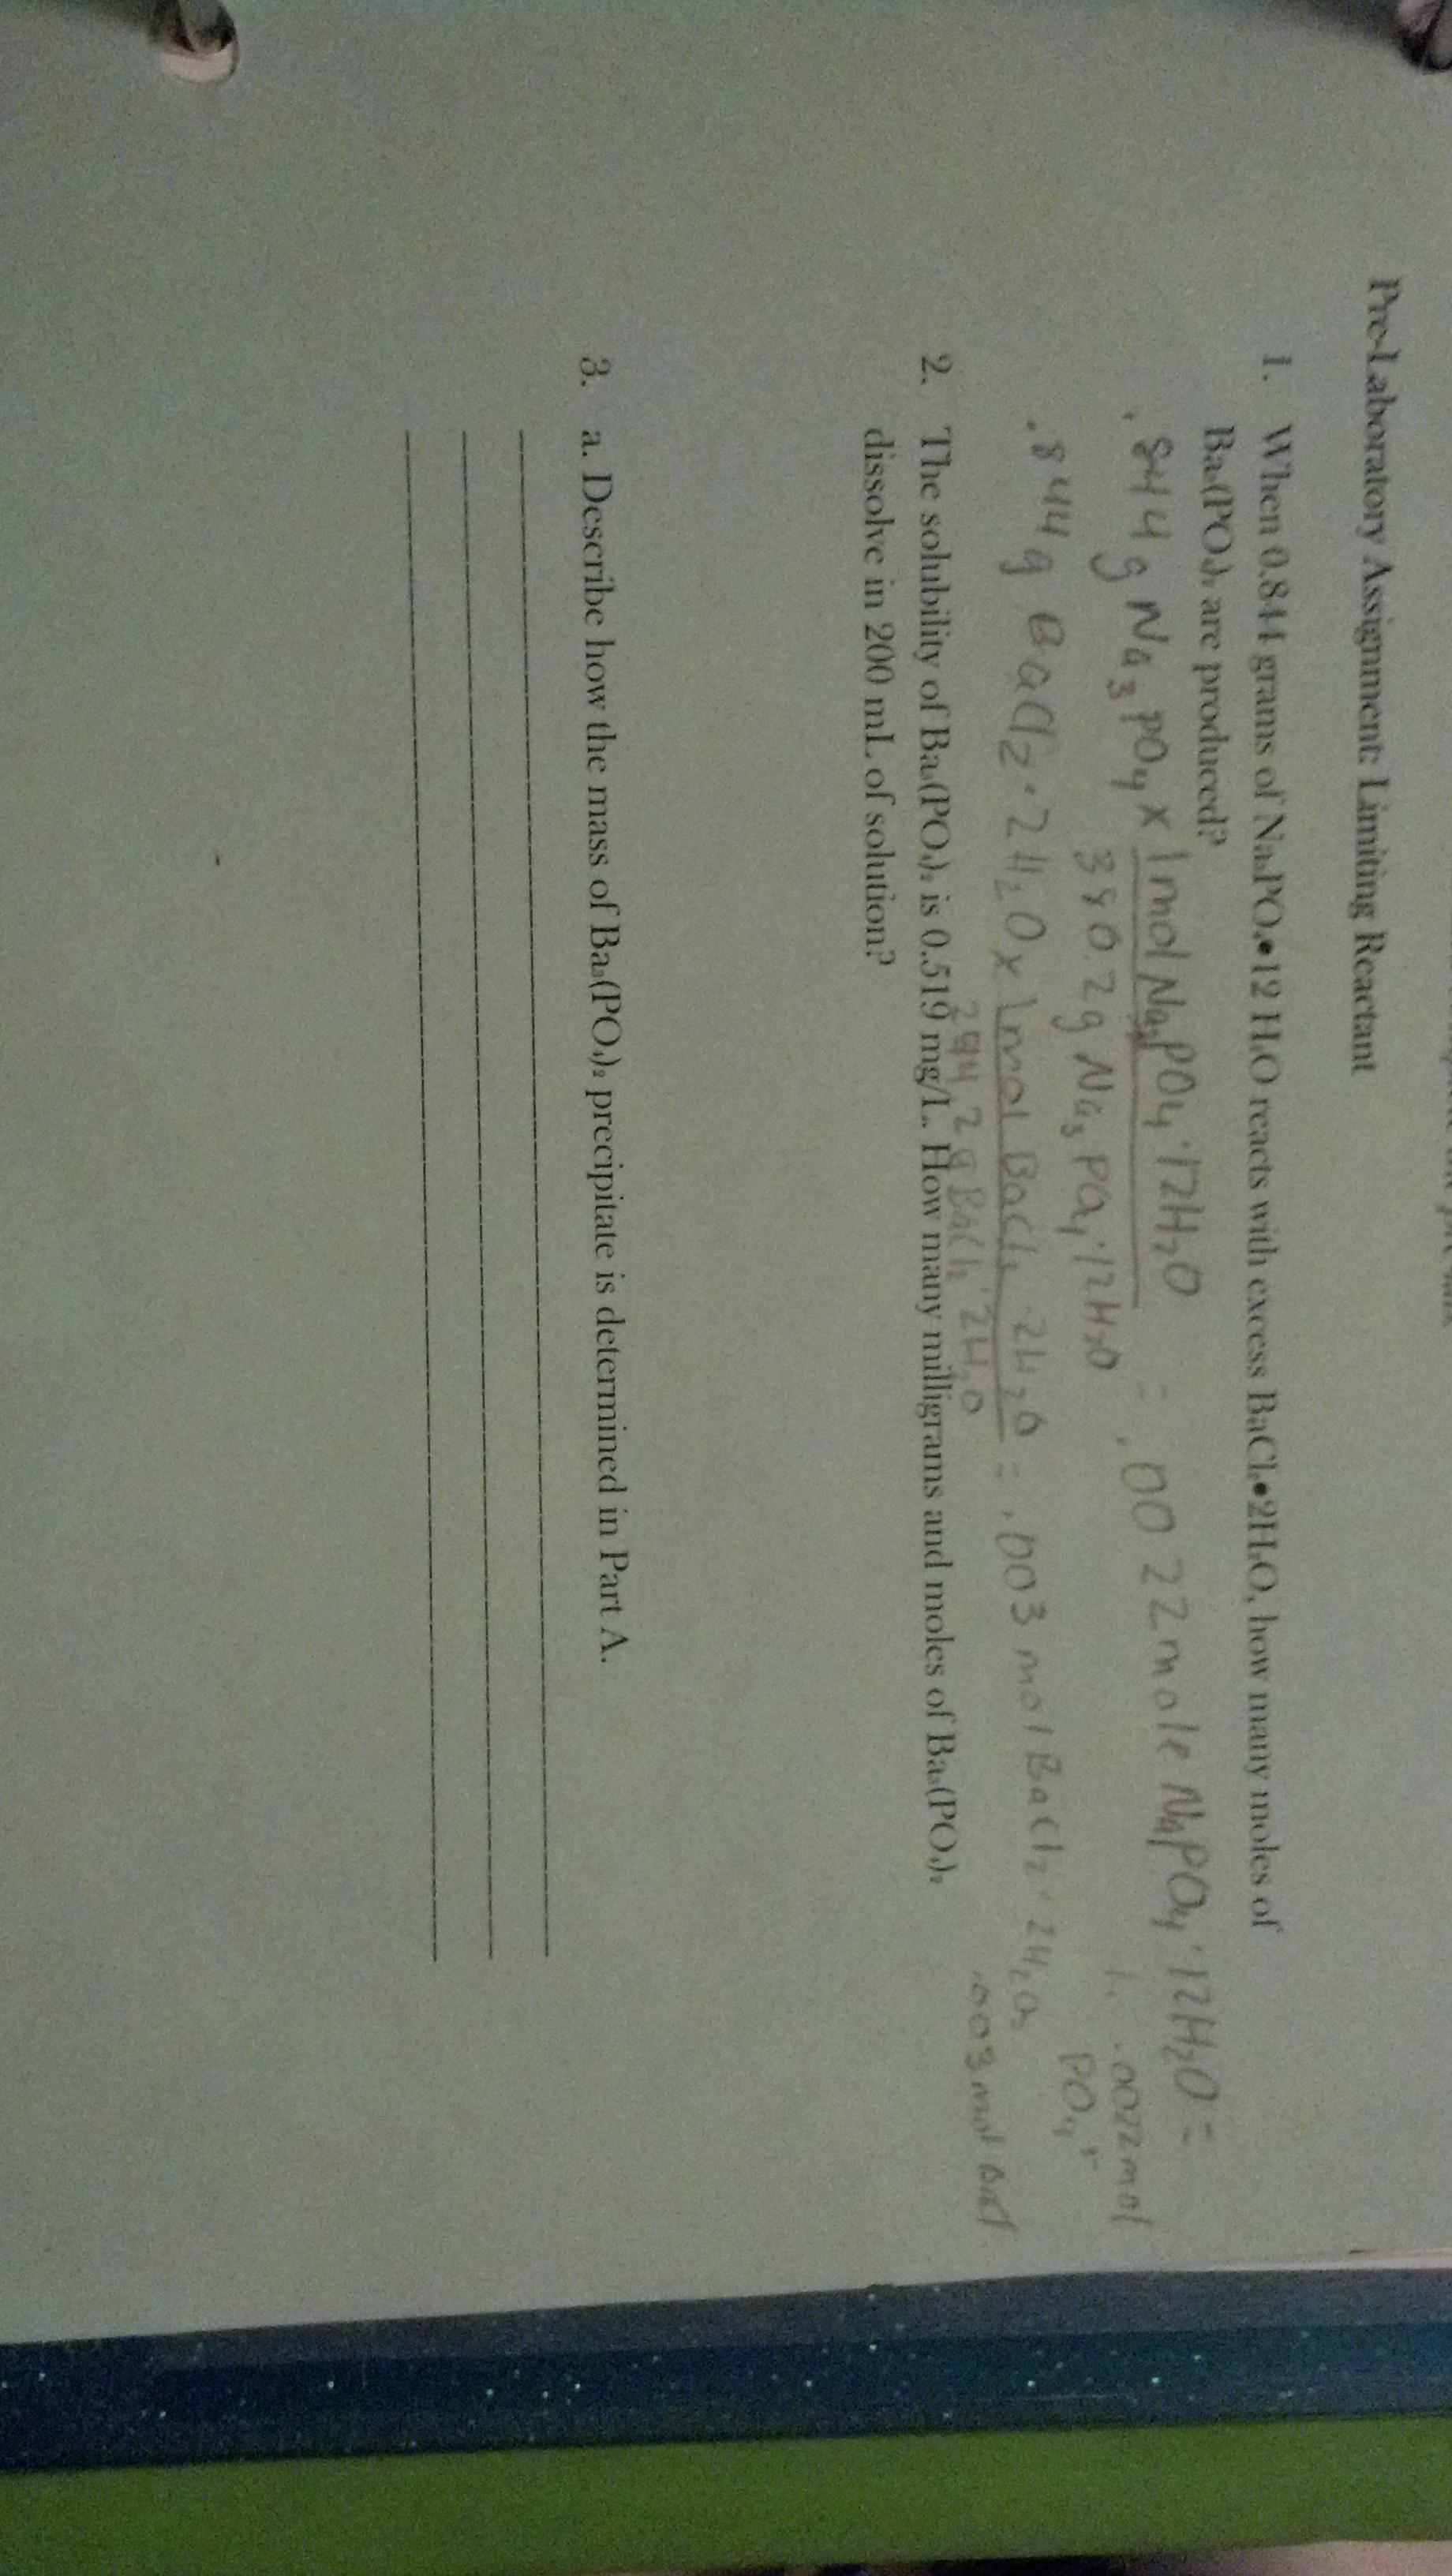 Pre-Laboratory Assignment: Limiting Reactant
1. When 0.844 grams of Na₃PO₄•12 H₂O reacts with excess BaCl₂•2H₂O, how many moles of
Ba₃(PO₄)₂ are produced?
.844 g Na₃PO₄ x 1 mol Na₃PO₄·12H₂O = .0022 mole Na₃PO₄·12H₂O =
380.2g Na₃PO₄·12H₂O
1. .0022 mol
PO₄
.844 g BaCl₂·2H₂O x 1 mol BaCl₂·2H₂O = .003 mol BaCl₂·2H₂O
244.2 g BaCl₂·2H₂O
.003 mol
2. The solubility of Ba₃(PO₄)₂ is 0.519 mg/L. How many milligrams and moles of Ba₃(PO₄)₂
dissolve in 200 mL of solution?
3. a. Describe how the mass of Ba₃(PO₄)₂ precipitate is determined in Part A.